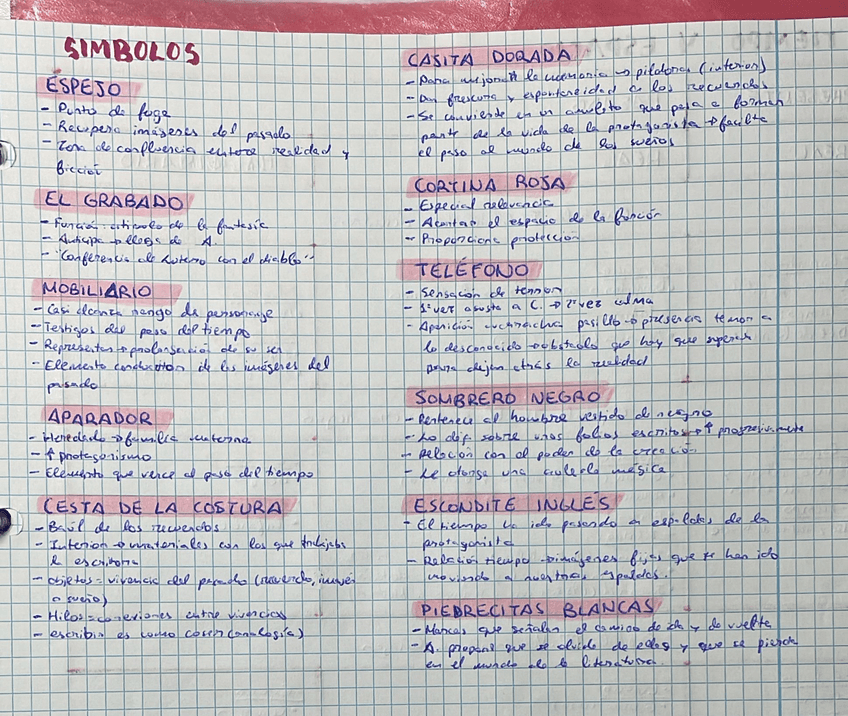 SIMBOLOS
ESPEJO
- Punto de fuga
- Recupera imágenes del pasado
- Zona de confluencia entre realidad y
ficción
EL GRABADO
- Función símbolo de la fantasía
- Anticipa → llegada de A.
- "Conferencia de Lutero con el diablo"
MOBILIARIO
- Casi alcanza rango de personaje
- Testigos del paso del tiempo
- Representan → prolongación de su ser
- Elemento conductor de las imágenes del
pasado
APARADOR
- Heredado → familia materna
- ↑ protagonismo
- Elemento que vence al paso del tiempo
CESTA DE LA COSTURA
- Baúl de los recuerdos
- Interior → materiales con los que trabaja
la escritora
- objetos = vivencia del pasado (recuerdo, imagen
o sueño)
- Hilos = conexiones entre vivencias
- escribir es como coser (analogía)
CASITA DORADA
- Para mejorar la memoria → píldoras (interior)
- Dan frescura y espontaneidad a los recuerdos
- Se convierte en un amuleto que pasa a formar
parte de la vida de la protagonista → facilita
el paso al mundo de los sueños
CORTINA ROJA
- Especial relevancia
- Acotan el espacio de la función
- Proporciona protección
TELÉFONO
- Sensación de temor
- 1ª vez asusta a C. → 2ª vez calma
- Aparición cucaracha pasillo → presencia temor a
lo desconocido → obstáculo que hay que superar
para dejar atrás la realidad
SOMBRERO NEGRO
- Pertenece al hombre vestido de negro
- Lo deja sobre unos folios escritos → ↑ progresivamente
- Relación con el poder de la creación
- Le otorga una aureola mágica
ESCONDITE INGLÉS
- El tiempo ha ido pasando a espaldas de la
protagonista
- Relación tiempo → imágenes fijas que se han ido
moviendo a nuestras espaldas.
PIEDRECITAS BLANCAS
- Marcas que señalan el camino de ida y de vuelta
- A. propone que se olvide de ellas y que se pierda
en el mundo de la literatura.